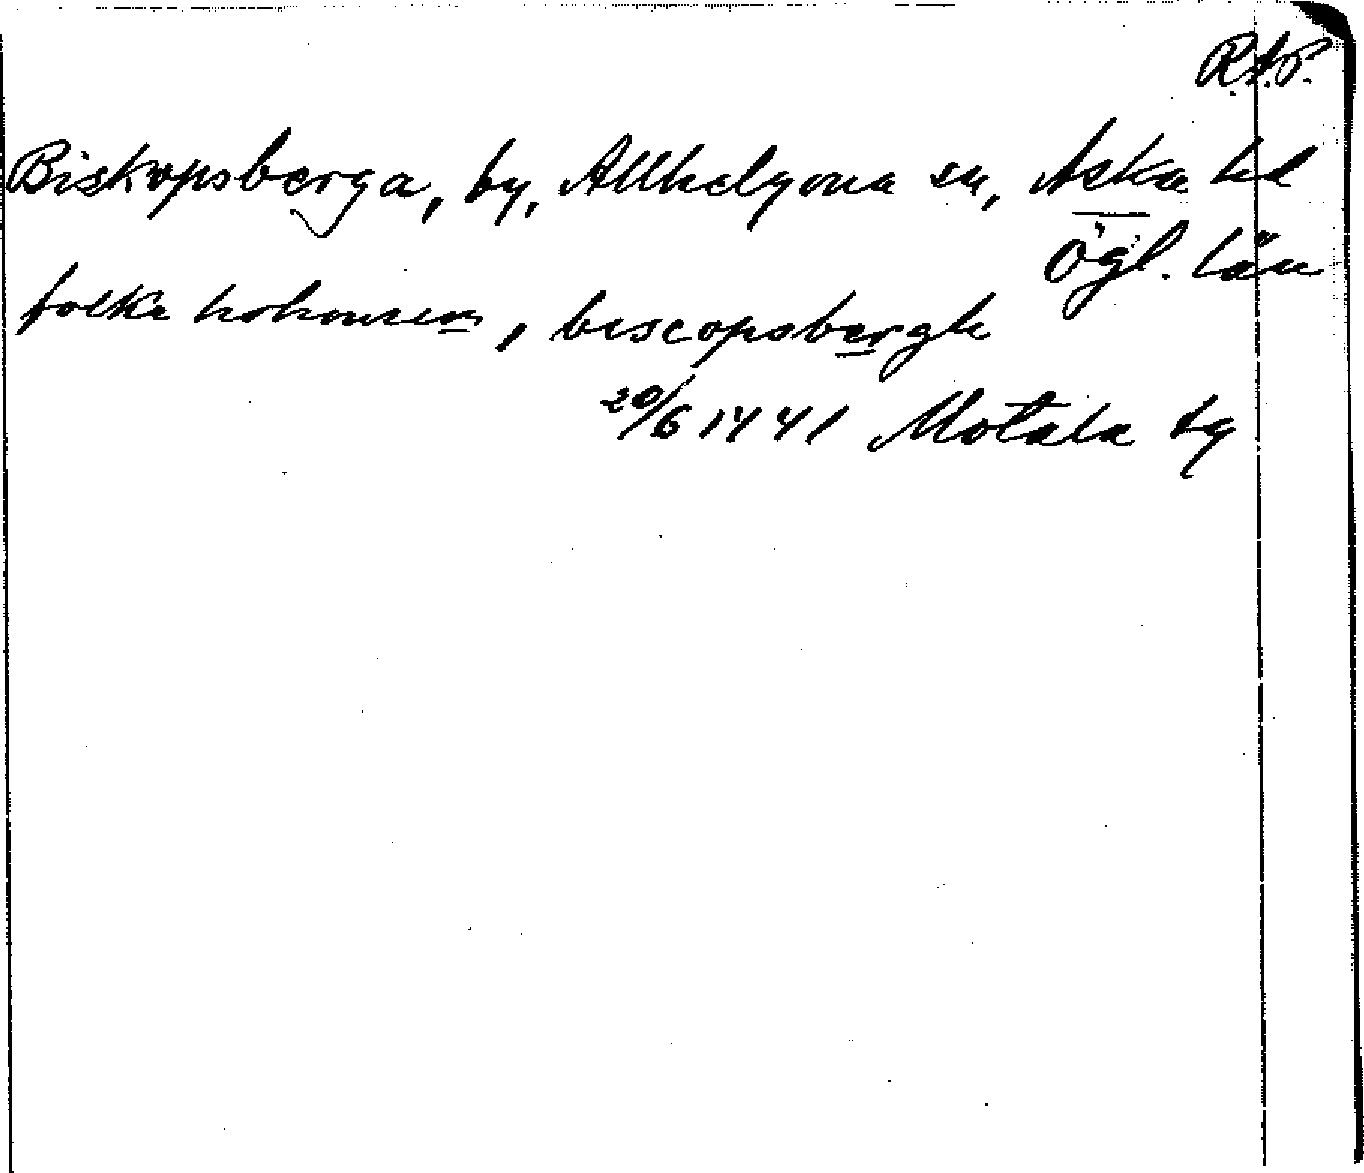 R.A.P.
Biskopsberga, by, Allhelgona sn, Aska hd
Ögl. län
folke hakonsson, bescopsbergh
20/6 1441 Motala tg